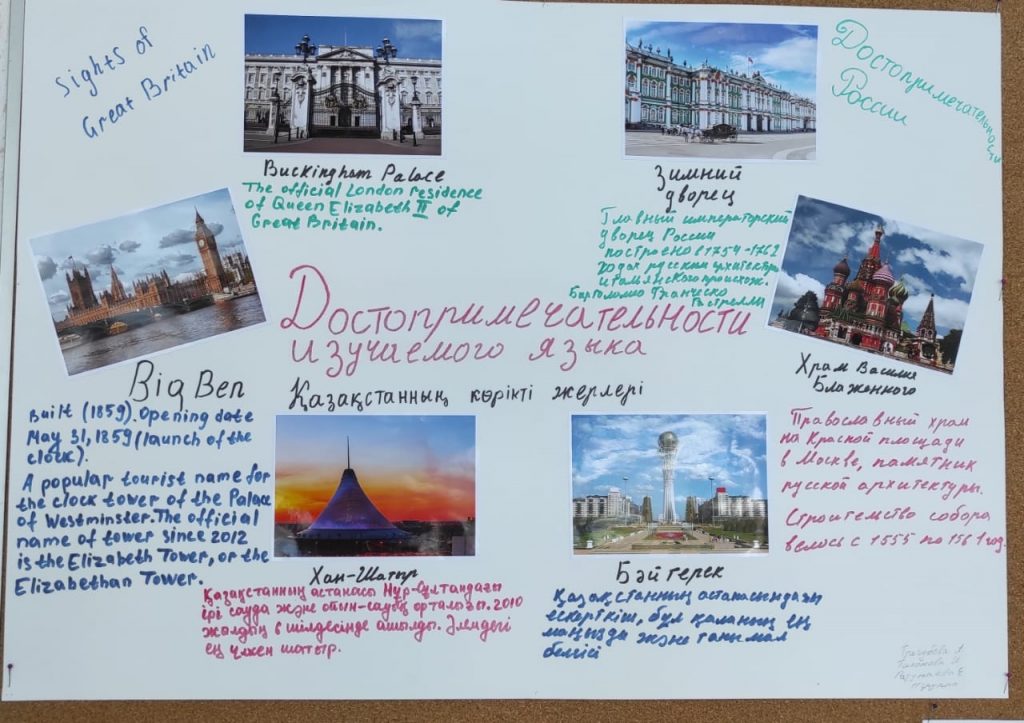 Sights of
Great Britain
Достопримечательности
России
Buckingham Palace
The official London residence
of Queen Elizabeth II of
Great Britain.
Зимний
дворец
Главный императорский
дворец России
построено в 1754-1762
годах русским архитектором
итальянского происхож.
Бартоломео Франческо
Растрелли
Достопримечательности
изучаемого языка
Храм Василия
Блаженного
Православный храм
на Красной площади
в Москве, памятник
русской архитектуры.
Строительство собора
велось с 1555 по 1561 год.
Big Ben
Built (1859). Opening date
May 31, 1859 (launch of the
clock).
A popular tourist name for
the clock tower of the Palace
of Westminster. The official
name of tower since 2012
is the Elizabeth Tower, or the
Elizabethan Tower.
Қазақстанның көрікті жерлері
Хан-Шатыр
Қазақстанның астанасы Нұр-Сұлтандағы
ірі сауда және ойын-сауық орталығы. 2010
жылдың 6 шілдесінде ашылды. Әлемдегі
ең үлкен шатыр.
Бәйтерек
Қазақстанның астанасындағы
ескерткіш, бұл қаланың ең
маңызды және танымал
белгісі